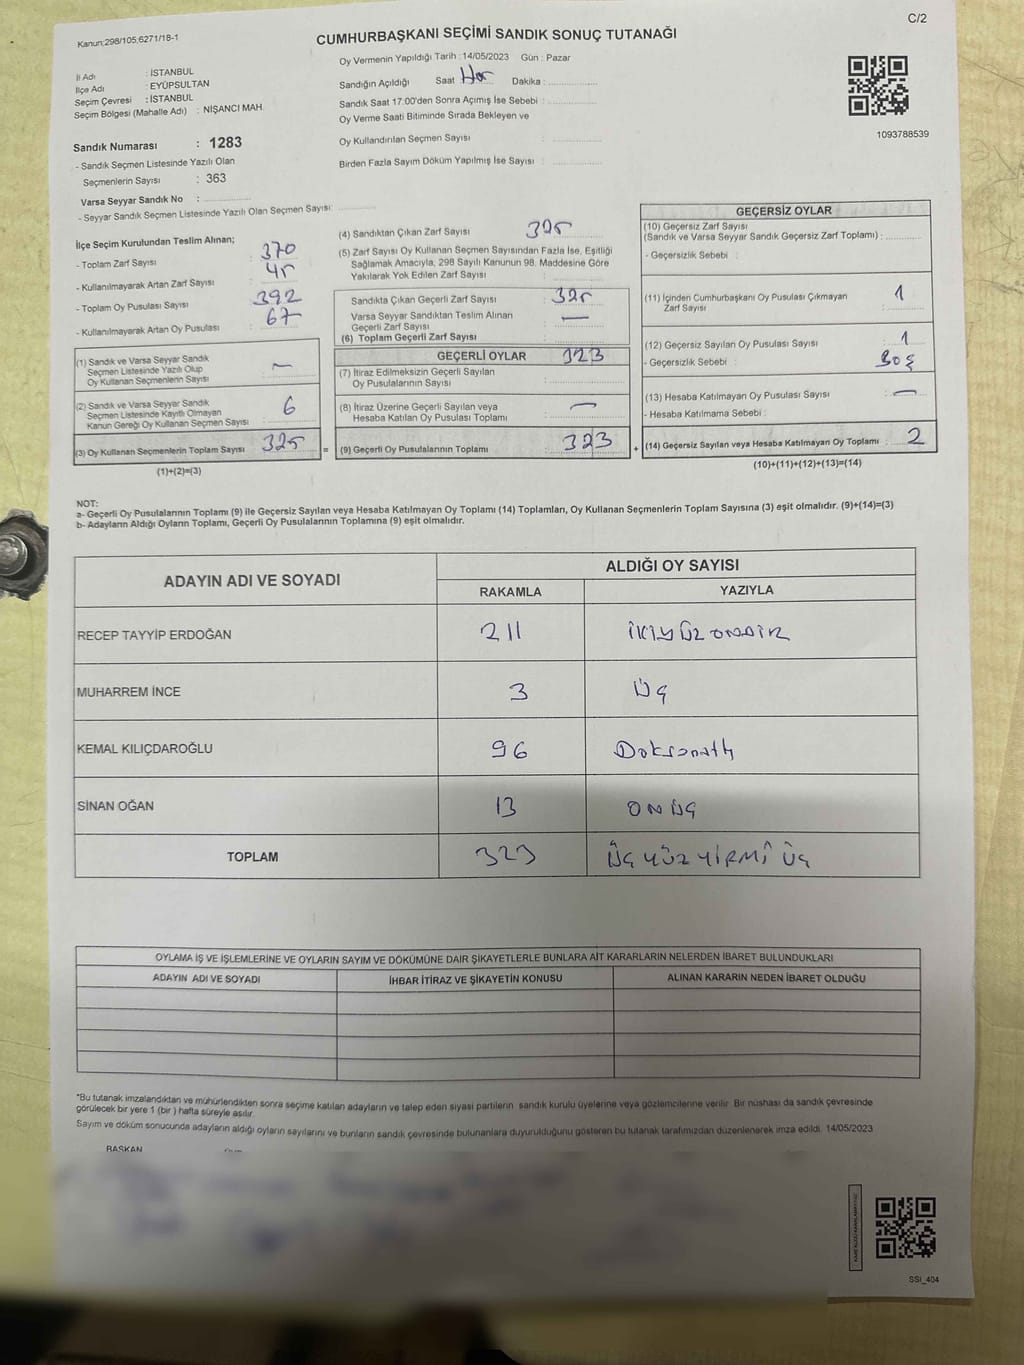 C/2
Kanun:298/105;6271/18-1
CUMHURBAŞKANI SEÇİMİ SANDIK SONUÇ TUTANAĞI
İl Adı : İSTANBUL
İlçe Adı : EYÜPSULTAN
Seçim Çevresi : İSTANBUL
Seçim Bölgesi (Mahalle Adı) : NİŞANCI MAH.
Sandık Numarası : 1283
- Sandık Seçmen Listesinde Yazılı Olan
Seçmenlerin Sayısı : 363
Varsa Seyyar Sandık No :
- Seyyar Sandık Seçmen Listesinde Yazılı Olan Seçmen Sayısı:
Oy Vermenin Yapıldığı Tarih : 14/05/2023 Gün : Pazar
Sandığın Açıldığı Saat Dakika :
Sandık Saat 17:00'den Sonra Açımış İse Sebebi :
Oy Verme Saati Bitiminde Sırada Bekleyen ve
Oy Kullandırılan Seçmen Sayısı :
Birden Fazla Sayım Döküm Yapılmış İse Sayısı :
1093788539
İlçe Seçim Kurulundan Teslim Alınan;
- Toplam Zarf Sayısı : 370
- Kullanılmayarak Artan Zarf Sayısı : 45
- Toplam Oy Pusulası Sayısı : 392
- Kullanılmayarak Artan Oy Pusulası : 67
(1) Sandık ve Varsa Seyyar Sandık
Seçmen Listesinde Yazılı Olup
Oy Kullanan Seçmenlerin Sayısı : —
(2) Sandık ve Varsa Seyyar Sandık
Seçmen Listesinde Kayıtlı Olmayan
Kanun Gereği Oy Kullanan Seçmen Sayısı : 6
(3) Oy Kullanan Seçmenlerin Toplam Sayısı : 325
(1)+(2)=(3)
(4) Sandıktan Çıkan Zarf Sayısı : 325
(5) Zarf Sayısı Oy Kullanan Seçmen Sayısından Fazla İse, Eşitliği
Sağlamak Amacıyla, 298 Sayılı Kanunun 98. Maddesine Göre
Yakılarak Yok Edilen Zarf Sayısı :
Sandıkta Çıkan Geçerli Zarf Sayısı : 325
Varsa Seyyar Sandıktan Teslim Alınan
Geçerli Zarf Sayısı : —
(6) Toplam Geçerli Zarf Sayısı :
GEÇERLİ OYLAR 323
(7) İtiraz Edilmeksizin Geçerli Sayılan
Oy Pusulalarının Sayısı :
(8) İtiraz Üzerine Geçerli Sayılan veya
Hesaba Katılan Oy Pusulası Toplamı : —
= (9) Geçerli Oy Pusulalarının Toplamı : 323
GEÇERSİZ OYLAR
(10) Geçersiz Zarf Sayısı
(Sandık ve Varsa Seyyar Sandık Geçersiz Zarf Toplamı) :
- Geçersizlik Sebebi :
(11) İçinden Cumhurbaşkanı Oy Pusulası Çıkmayan
Zarf Sayısı : 1
(12) Geçersiz Sayılan Oy Pusulası Sayısı : 1
- Geçersizlik Sebebi : Boş
(13) Hesaba Katılmayan Oy Pusulası Sayısı : —
- Hesaba Katılmama Sebebi :
+ (14) Geçersiz Sayılan veya Hesaba Katılmayan Oy Toplamı : 2
(10)+(11)+(12)+(13)=(14)
NOT:
a- Geçerli Oy Pusulalarının Toplamı (9) ile Geçersiz Sayılan veya Hesaba Katılmayan Oy Toplamı (14) Toplamları, Oy Kullanan Seçmenlerin Toplam Sayısına (3) eşit olmalıdır. (9)+(14)=(3)
b- Adayların Aldığı Oyların Toplamı, Geçerli Oy Pusulalarının Toplamına (9) eşit olmalıdır.
ADAYIN ADI VE SOYADI
ALDIĞI OY SAYISI
RAKAMLA YAZIYLA
RECEP TAYYİP ERDOĞAN 211 İKİYÜZONBİR
MUHARREM İNCE 3 ÜÇ
KEMAL KILIÇDAROĞLU 96 Doksanaltı
SİNAN OĞAN 13 ONÜÇ
TOPLAM 323 ÜÇYÜZYİRMİ ÜÇ
OYLAMA İŞ VE İŞLEMLERİNE VE OYLARIN SAYIM VE DÖKÜMÜNE DAİR ŞİKAYETLERLE BUNLARA AİT KARARLARIN NELERDEN İBARET BULUNDUKLARI
ADAYIN ADI VE SOYADI İHBAR İTİRAZ VE ŞİKAYETİN KONUSU ALINAN KARARIN NEDEN İBARET OLDUĞU
*Bu tutanak imzalandıktan ve mühürlendikten sonra seçime katılan adayların ve talep eden siyasi partilerin sandık kurulu üyelerine veya gözlemcilerine verilir. Bir nüshası da sandık çevresinde
görülecek bir yere 1 (bir ) hafta süreyle asılır.
Sayım ve döküm sonucunda adayların aldığı oyların sayılarını ve bunların sandık çevresinde bulunanlara duyurulduğunu gösteren bu tutanak tarafımızdan düzenlenerek imza edildi. 14/05/2023
BAŞKAN
SSİ_404